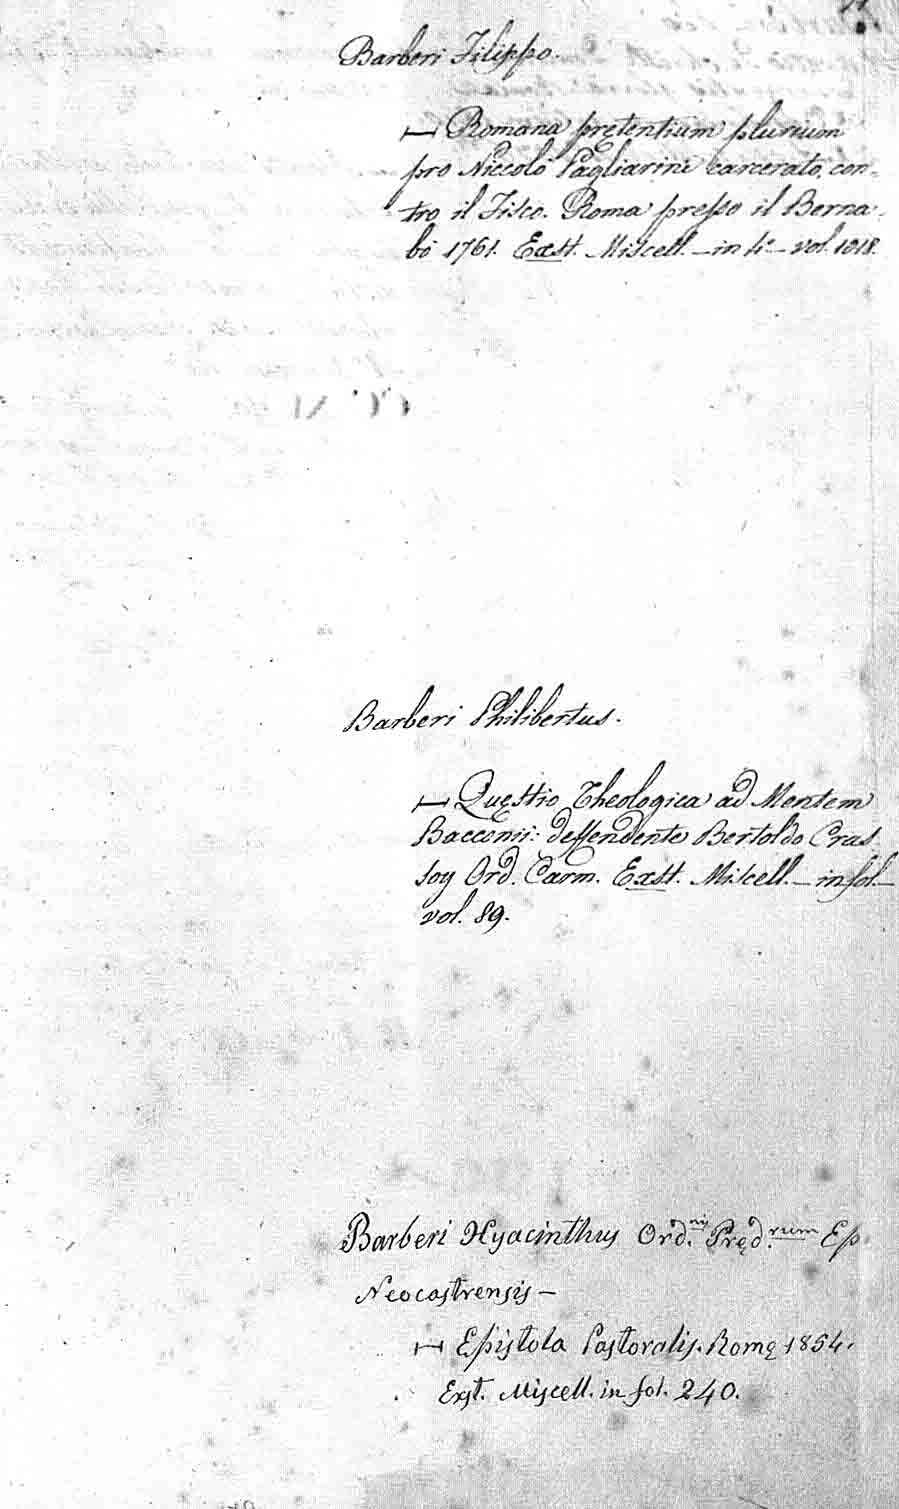 Barberi Filippo.
⊢ Romana prętentium plurium
pro Niccolò Pagliarini carcerato, con-
tro il Fisco. Roma presso il Berna-
bò 1761. Exst. Miscell. – in 4° – vol. 1018.
Barberi Philibertus.
⊢ Quęstio Theologica ad Mentem
Bacconii: deffendente Bertoldo Cras
soy Ord. Carm. Exst. Miscell. – in fol. –
vol. 89.
Barberi Hyacinthus Ord.nis Pręd.rum Ep
Neocastrensis –
⊢ Epistola Pastoralis. Romę 1854.
Exst. Miscell. in fol. 240.